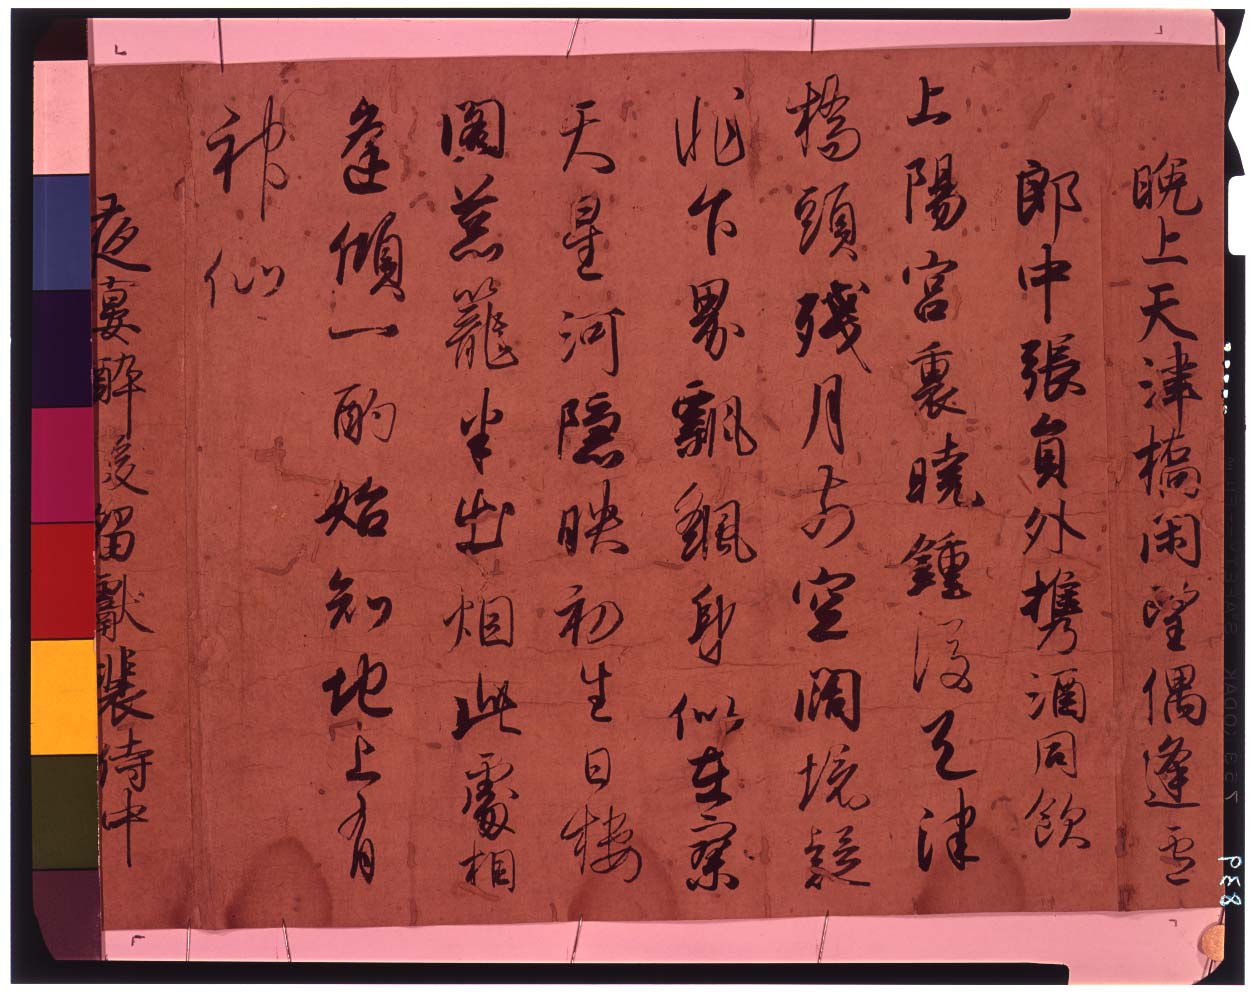 晩上天津橋閑望偶逢盧
郎中張員外携酒同飲
上陽宮裏曉鍾後天津
橋頭殘月前空闊境疑
非下界飄颻身似在寥
天星河隱映初生日樓
閣葱籠半出烟此處相
逢傾一酌始知地上有
神仙
夜宴醉後留獻裴侍中